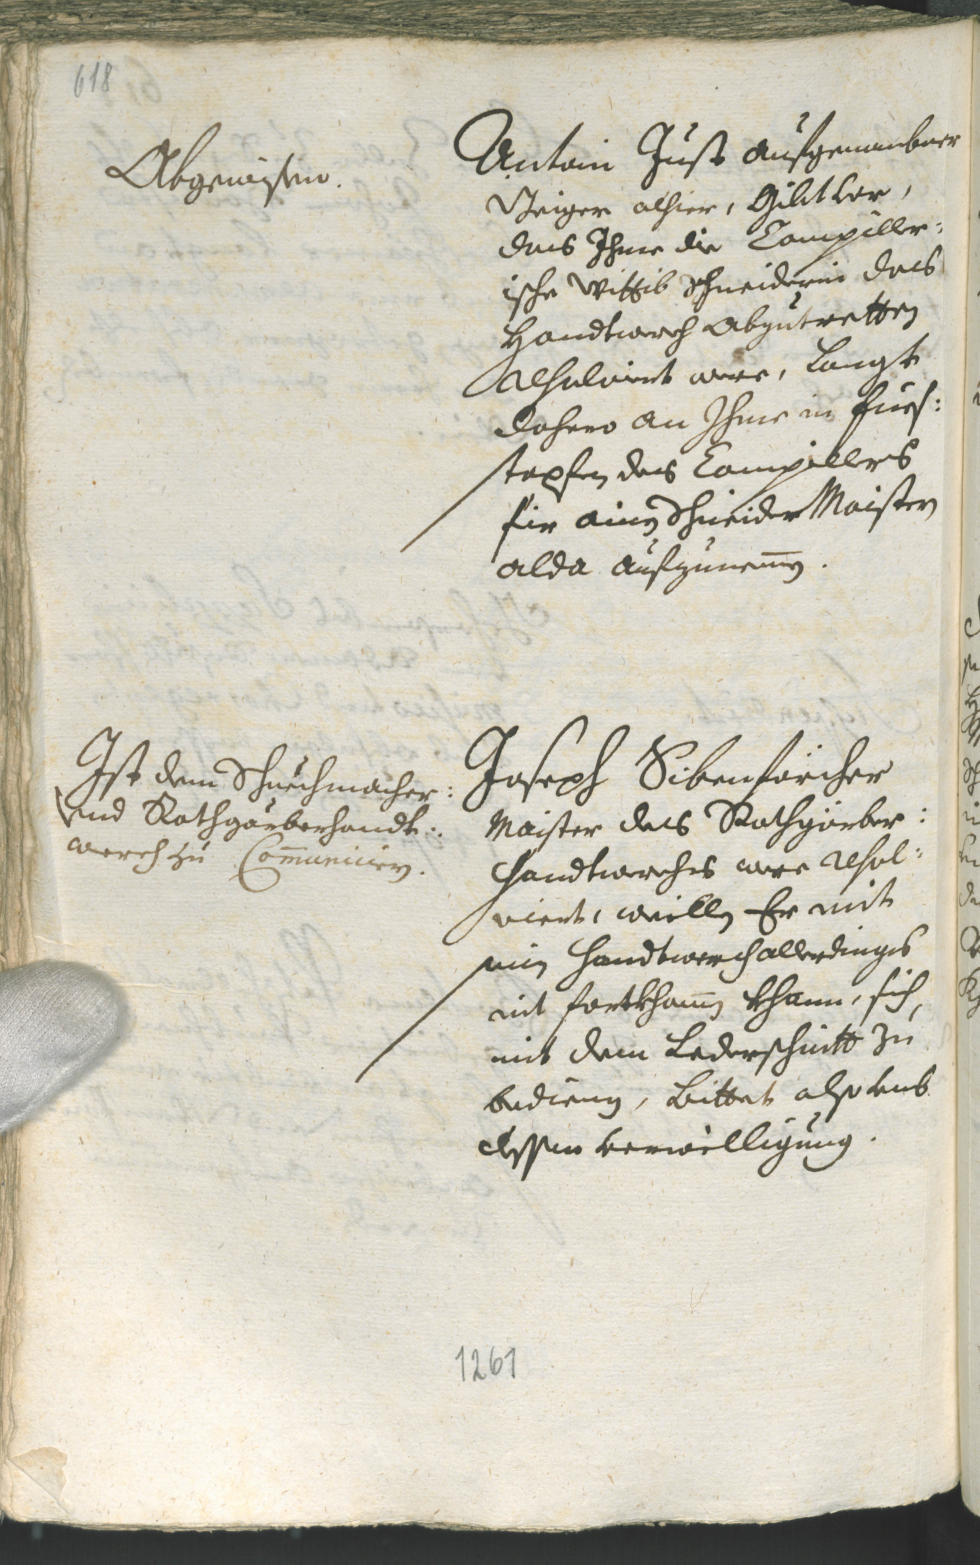 618
Abgewisen.
Antoni Just aufgenambner
Steiger alhier, gibt vor,
das Ihme die Campiller:
ische Wittib Schneiderin das
Handtwerch abzutretten
resolviert were, langt
dahero an Ihme in fues:
stapfen des Campillers
fir ainen Schneider Maistern
alda aufzunemen.
Ist dem Schuechmacher:
und Rothgärberhandt:
werch zu Communicieren.
Joseph Sibenförcher
Maister des Rothgärber:
handtwerchs were resol:
viert, weillen Er mit
sein handtwerch allerdings
nit fortkhomen khann, sich
mit dem Lederschnitt zu
bedienen, bittet also umb
dessen verwilligung.
1261